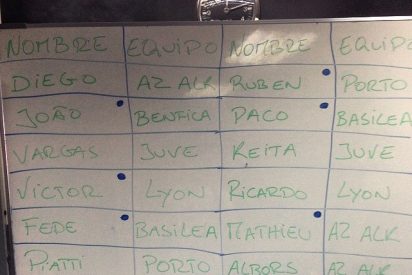 NOMBRE EQUIPO NOMBRE EQUIPO
DIEGO AZ ALK RUBEN PORTO
JOÃO BENFICA PACO BASILEA
VARGAS JUVE KEITA JUVE
VICTOR LYON RICARDO LYON
FEDE BASILEA MATHIEU AZ ALK
PIATTI PORTO ALBORS AZ ALK